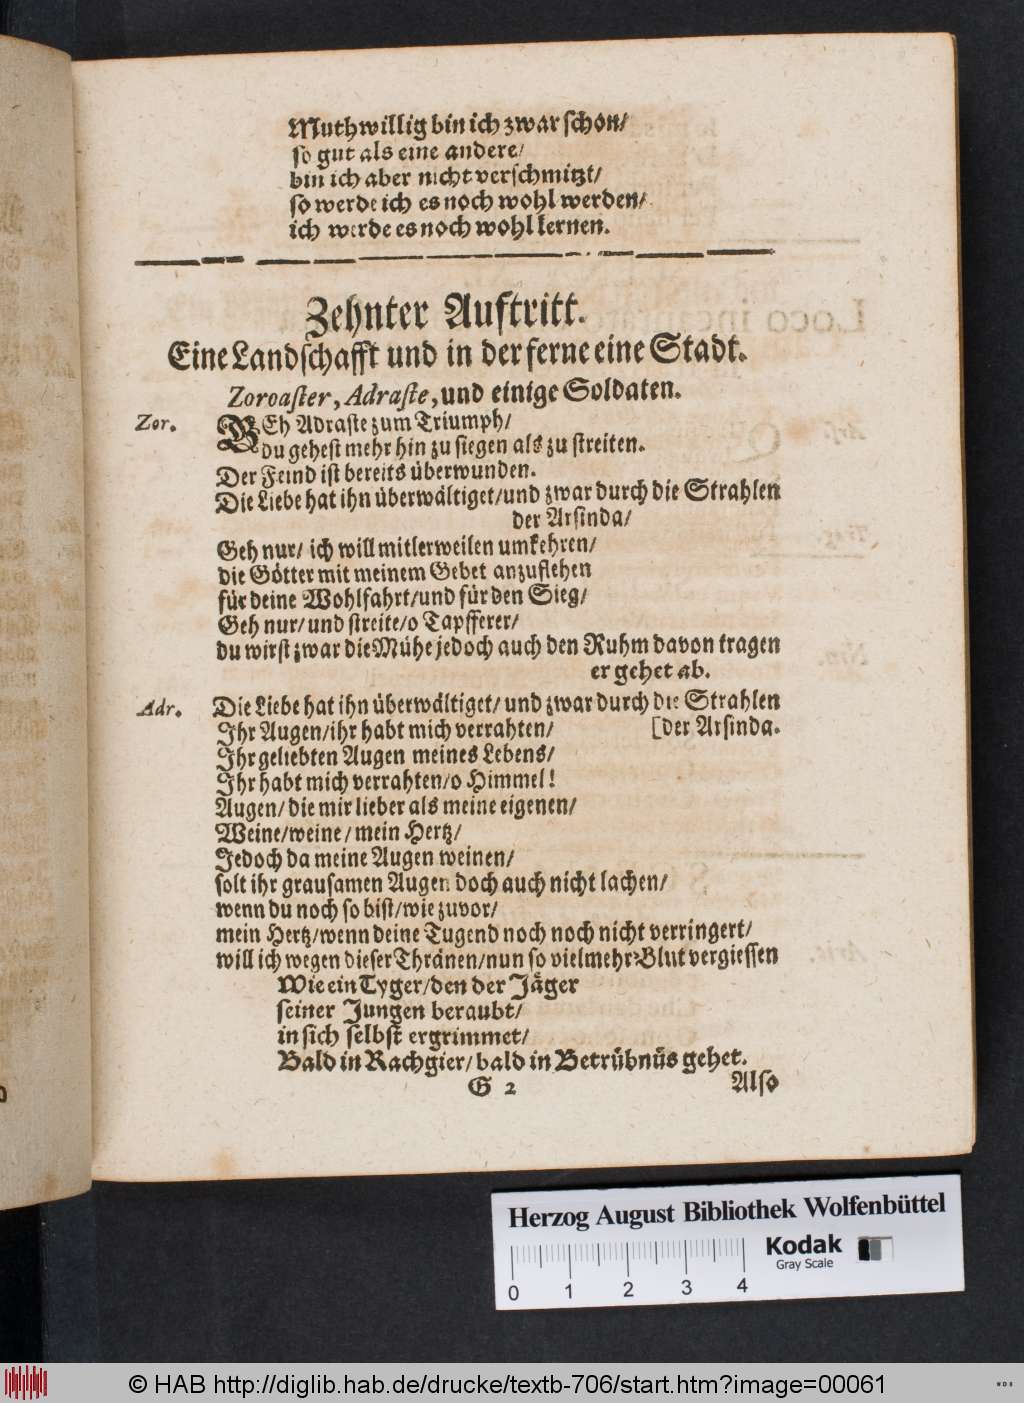 Muthwillig bin ich zwar schon/
so gut als eine andere/
bin ich aber nicht verschmitzt/
so werde ich es noch wohl werden/
ich werde es noch wohl lernen.
Zehnter Auftritt.
Eine Landschafft und in der ferne eine Stadt.
Zoroaster, Adraste, und einige Soldaten.
Zor. GEh Adraste zum Triumph/
du gehest mehr hin zu siegen als zu streiten.
Der Feind ist bereits überwunden.
Die Liebe hat ihn überwältiget/und zwar durch die Strahlen
der Arsinda/
Geh nur/ ich will mitlerweilen umkehren/
die Götter mit meinem Gebet anzuflehen
für deine Wohlfahrt/und für den Sieg/
Geh nur/und streite/o Tapfferer/
du wirst zwar die Mühe jedoch auch den Ruhm davon tragen
er gehet ab.
Adr. Die Liebe hat ihn überwältiget/ und zwar durch die Strahlen
Ihr Augen/ihr habt mich verrahten/ [der Arsinda.
Ihr geliebten Augen meines Lebens/
Ihr habt mich verrahten/o Himmel!
Augen/ die mir lieber als meine eigenen/
Weine/weine/ mein Hertz/
Jedoch da meine Augen weinen/
solt ihr grausamen Augen doch auch nicht lachen/
wenn du noch so bist/wie zuvor/
mein Hertz/wenn deine Tugend noch noch nicht verringert/
will ich wegen dieser Thränen/nun so vielmehr Blut vergiessen
Wie ein Tyger/den der Jäger
seiner Jungen beraubt/
in sich selbst ergrimmet/
Bald in Rachgier/ bald in Betrübnüs gehet.
G 2 Also
Herzog August Bibliothek Wolfenbüttel
Kodak
Gray Scale
0 1 2 3 4
© HAB http://diglib.hab.de/drucke/textb-706/start.htm?image=00061